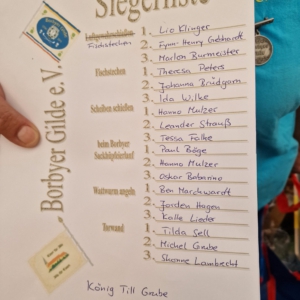 Siegerliste
Borbyer Gilde e.V.
Fischstechen
1. Lio Klinger
2. Fynn-Henry Gebhardt
3. Marlon Burmeister
Fischstechen
1. Theresa Peters
2. Johanna Brüdgam
3. Ida Wilke
Scheiben schießen
1. Hanno Mulzer
2. Leander Strauß
3. Tessa Falke
beim Borbyer
Sackhüpferlauf
1. Paul Böge
2. Hanno Mulzer
3. Oskar
Wattwurm angeln
1. Ben Marckwardt
2. Jorden Hagen
3. Kalle Lieder
Torwand
1. Tilda Sell
2. Michel Grube
3. Shonne Lambrecht
König Till Grube